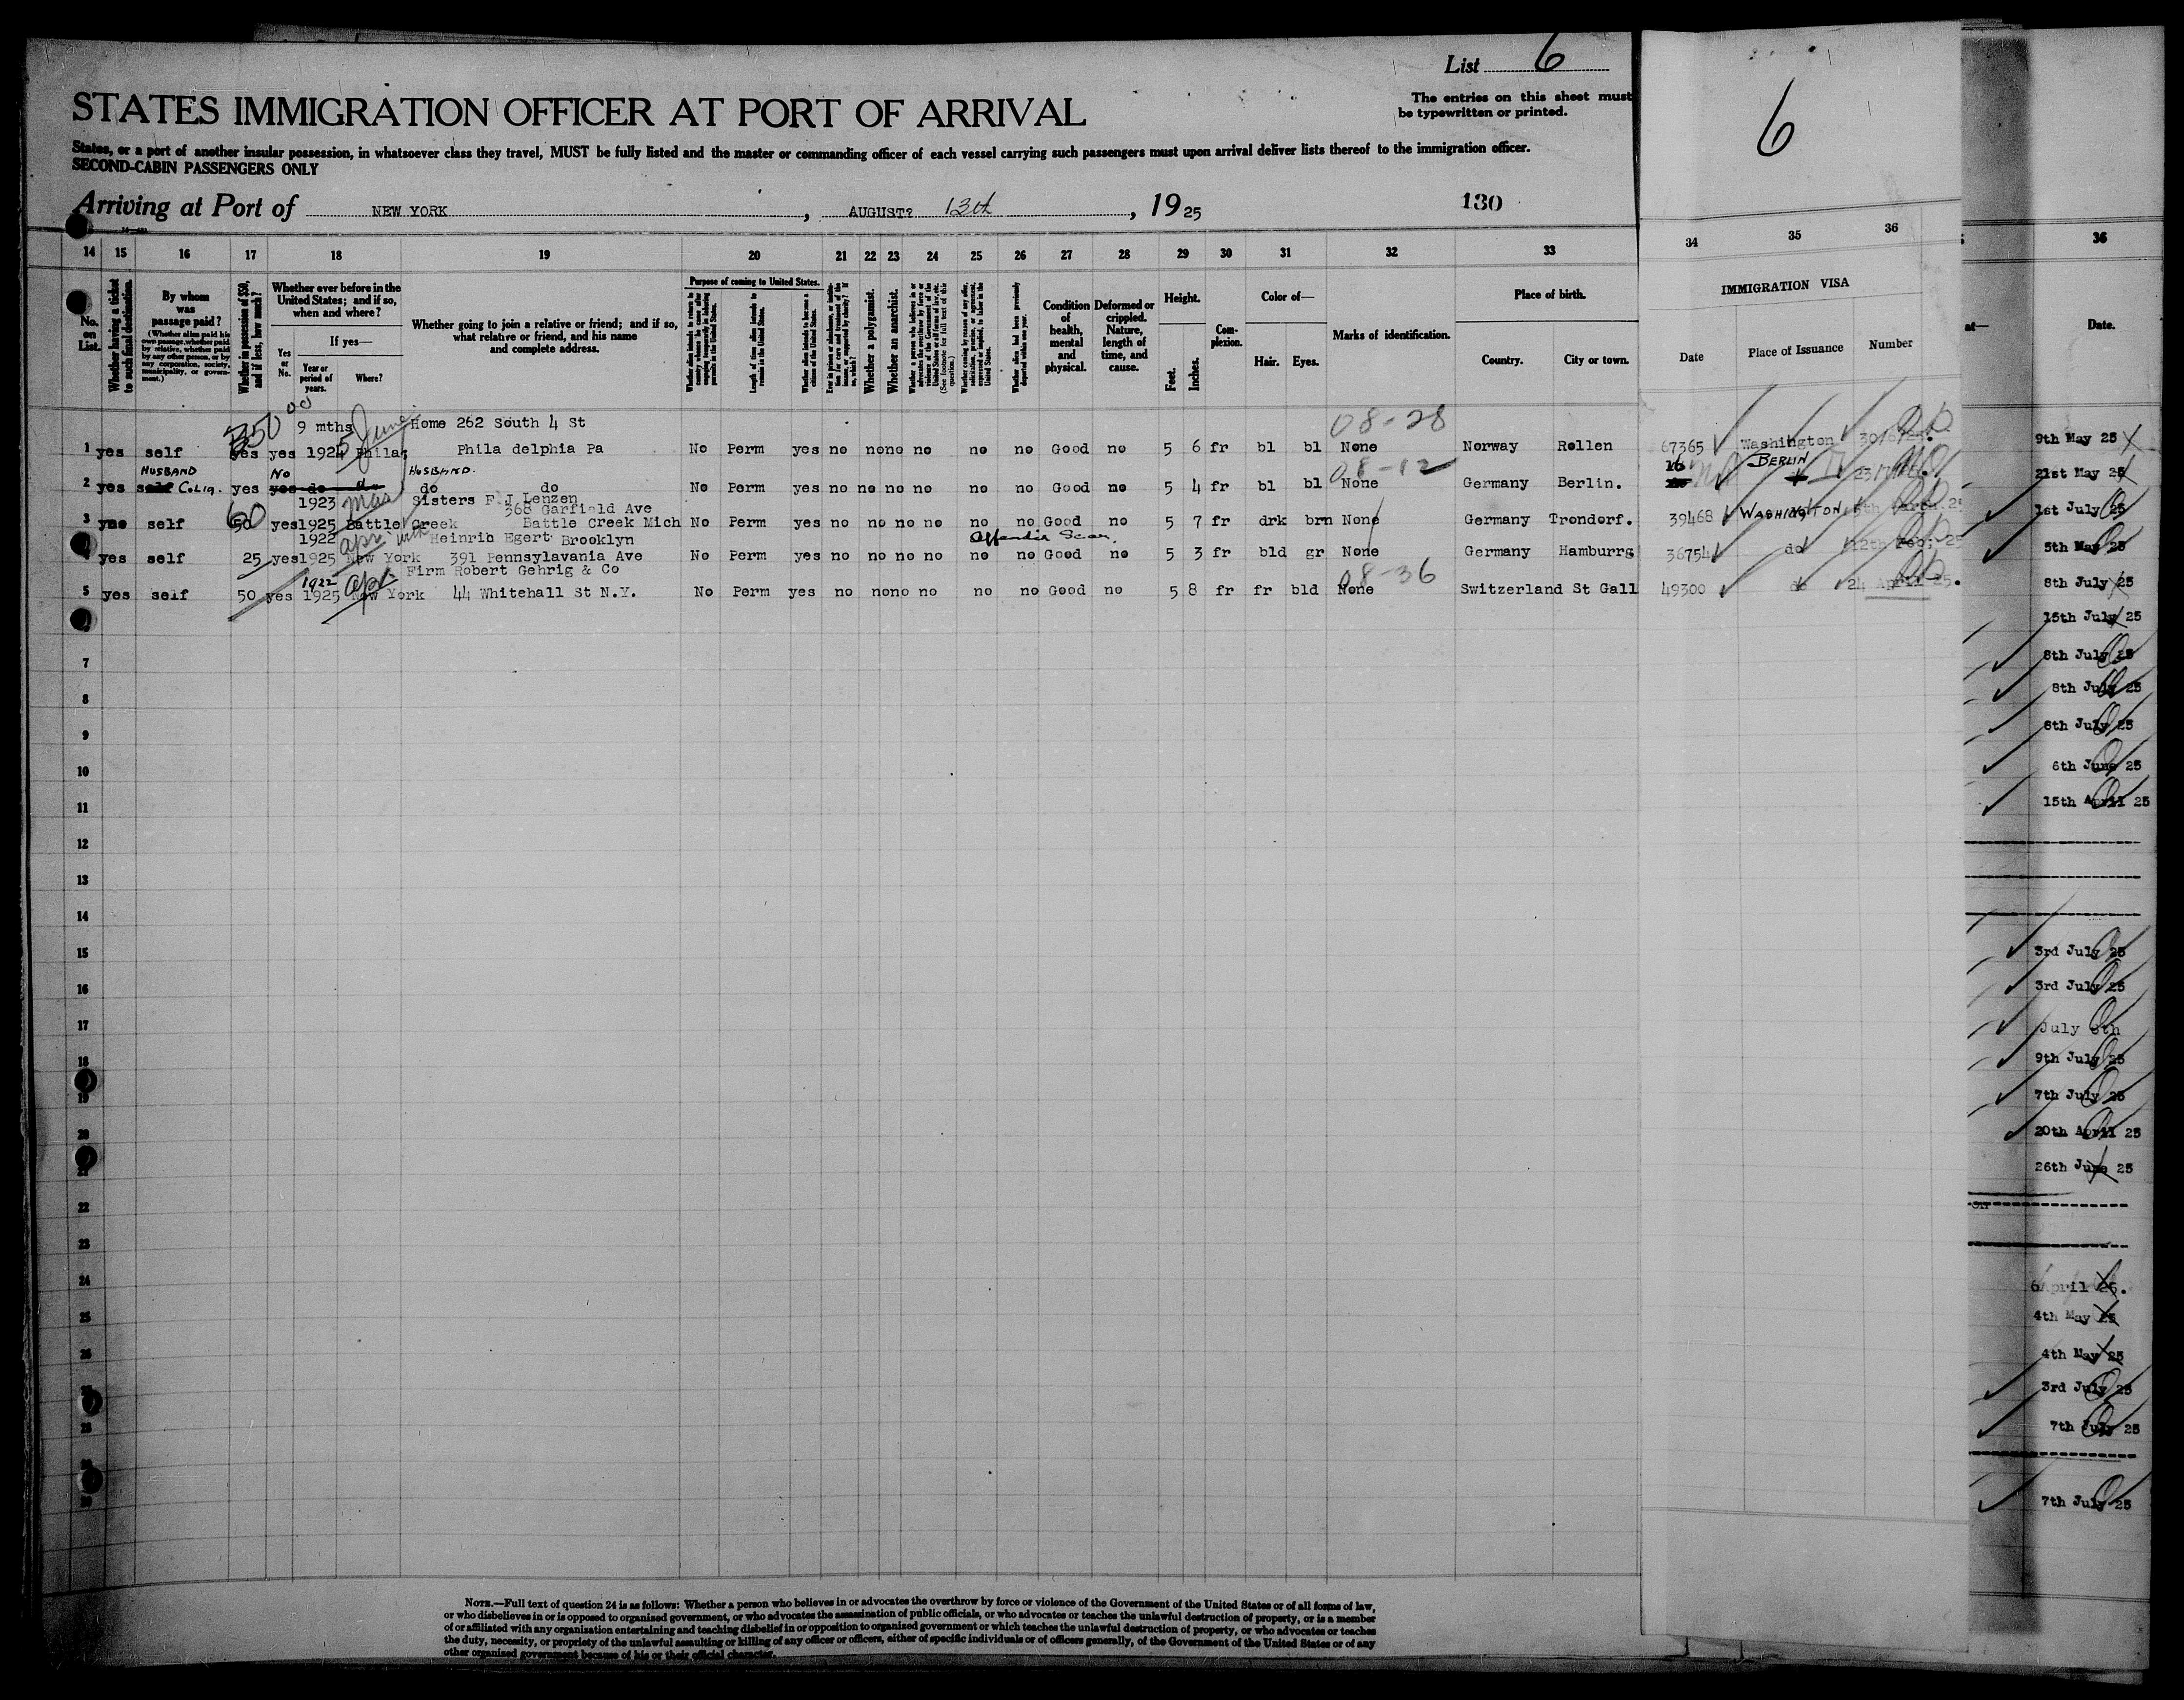 List 6
STATES IMMIGRATION OFFICER AT PORT OF ARRIVAL
The entries on this sheet must
be typewritten or printed.
6
States, or a port of another insular possession, in whatsoever class they travel, MUST be fully listed and the master or commanding officer of each vessel carrying such passengers must upon arrival deliver lists thereof to the immigration officer.
SECOND-CABIN PASSENGERS ONLY
Arriving at Port of NEW YORK, AUGUST? 13th, 1925 130
14 15 16 17 18 19 20 21 22 23 24 25 26 27 28 29 30 31 32 33 34 35 36 36
No. on List.
Whether having a ticket to such final destination.
By whom was passage paid?
(Whether alien paid his own passage, whether paid by relative, whether paid by any other person, or by any corporation, society, municipality, or government.)
Whether in possession of $50, and if less, how much?
Whether ever before in the United States; and if so, when and where?
Yes or No.
If yes—
Year or period of years.
Where?
Whether going to join a relative or friend; and if so, what relative or friend, and his name and complete address.
Purpose of coming to United States.
Length of time alien intends to remain in the United States.
Whether alien intends to become a citizen of the United States.
Whether a polygamist.
Whether an anarchist.
Condition of health, mental and physical.
Deformed or crippled. Nature, length of time, and cause.
Height.
Feet. Inches.
Complexion.
Color of—
Hair. Eyes.
Marks of identification.
Place of birth.
Country. City or town.
IMMIGRATION VISA
Date Place of Issuance Number
at— Date.
350 00 9 mths June Home 262 South 4 St 08-28
1 yes self yes yes 1924 Phila Phila delphia Pa No Perm yes no nono no no no Good no 5 6 fr bl bl None Norway Rollen 67365 Washington
HUSBAND No HUSBAND. 08-12 16 BERLIN
2 yes self yes yes do do do do No Perm yes no no no no no no Good no 5 4 fr bl bl None Germany Berlin.
1923 Sisters F J Lenzen
368 Garfield Ave
3 self 60 yes1925 Battle Creek Battle Creek Mich No Perm yes no no no no no no Good no 5 7 fr drk brn None Germany Trondorf. 39468 WASHINGTON
1922 Heinrib Egert Brooklyn
4 yes self 25 yes1925 New York 391 Pennsylavania Ave No Perm yes no no no no no no Good no 5 3 fr bld gr None Germany Hamburrg 36754 do 12th Feb; 25
1922 Apr. Firm Robert Gehrig & Co 08-36
5 yes self 50 yes 1925 New York 44 Whitehall St N.Y. No Perm yes no nono no no no Good no 5 8 fr fr bld None Switzerland St Gall 49300 do 24 April 25.
7
8
9
10
11
12
13
14
15
16
17
18
19
20
22
23
24
25
26
28
9th May 25
21st May 25
1st July 25
5th May 25
8th July 25
15th July 25
8th July 25
8th July 25
8th July 25
6th June 25
15th April 25
3rd July 25
3rd July 25
July 8th
9th July 25
7th July 25
20th April 25
26th June 25
6 April 25.
4th May 25
4th May 25
3rd July 25
7th July 25
7th July 25
NOTE.—Full text of question 24 is as follows: Whether a person who believes in or advocates the overthrow by force or violence of the Government of the United States or of all forms of law,
or who disbelieves in or is opposed to organized government, or who advocates the assassination of public officials, or who advocates or teaches the unlawful destruction of property, or is a member
of or affiliated with any organization entertaining and teaching disbelief in or opposition to organized government or which teaches the unlawful destruction of property, or who advocates or teaches
the duty, necessity, or propriety of the unlawful assaulting or killing of any officer or officers, either of specific individuals or of officers generally, of the Government of the United States or of any
other organized government because of his or their official character.